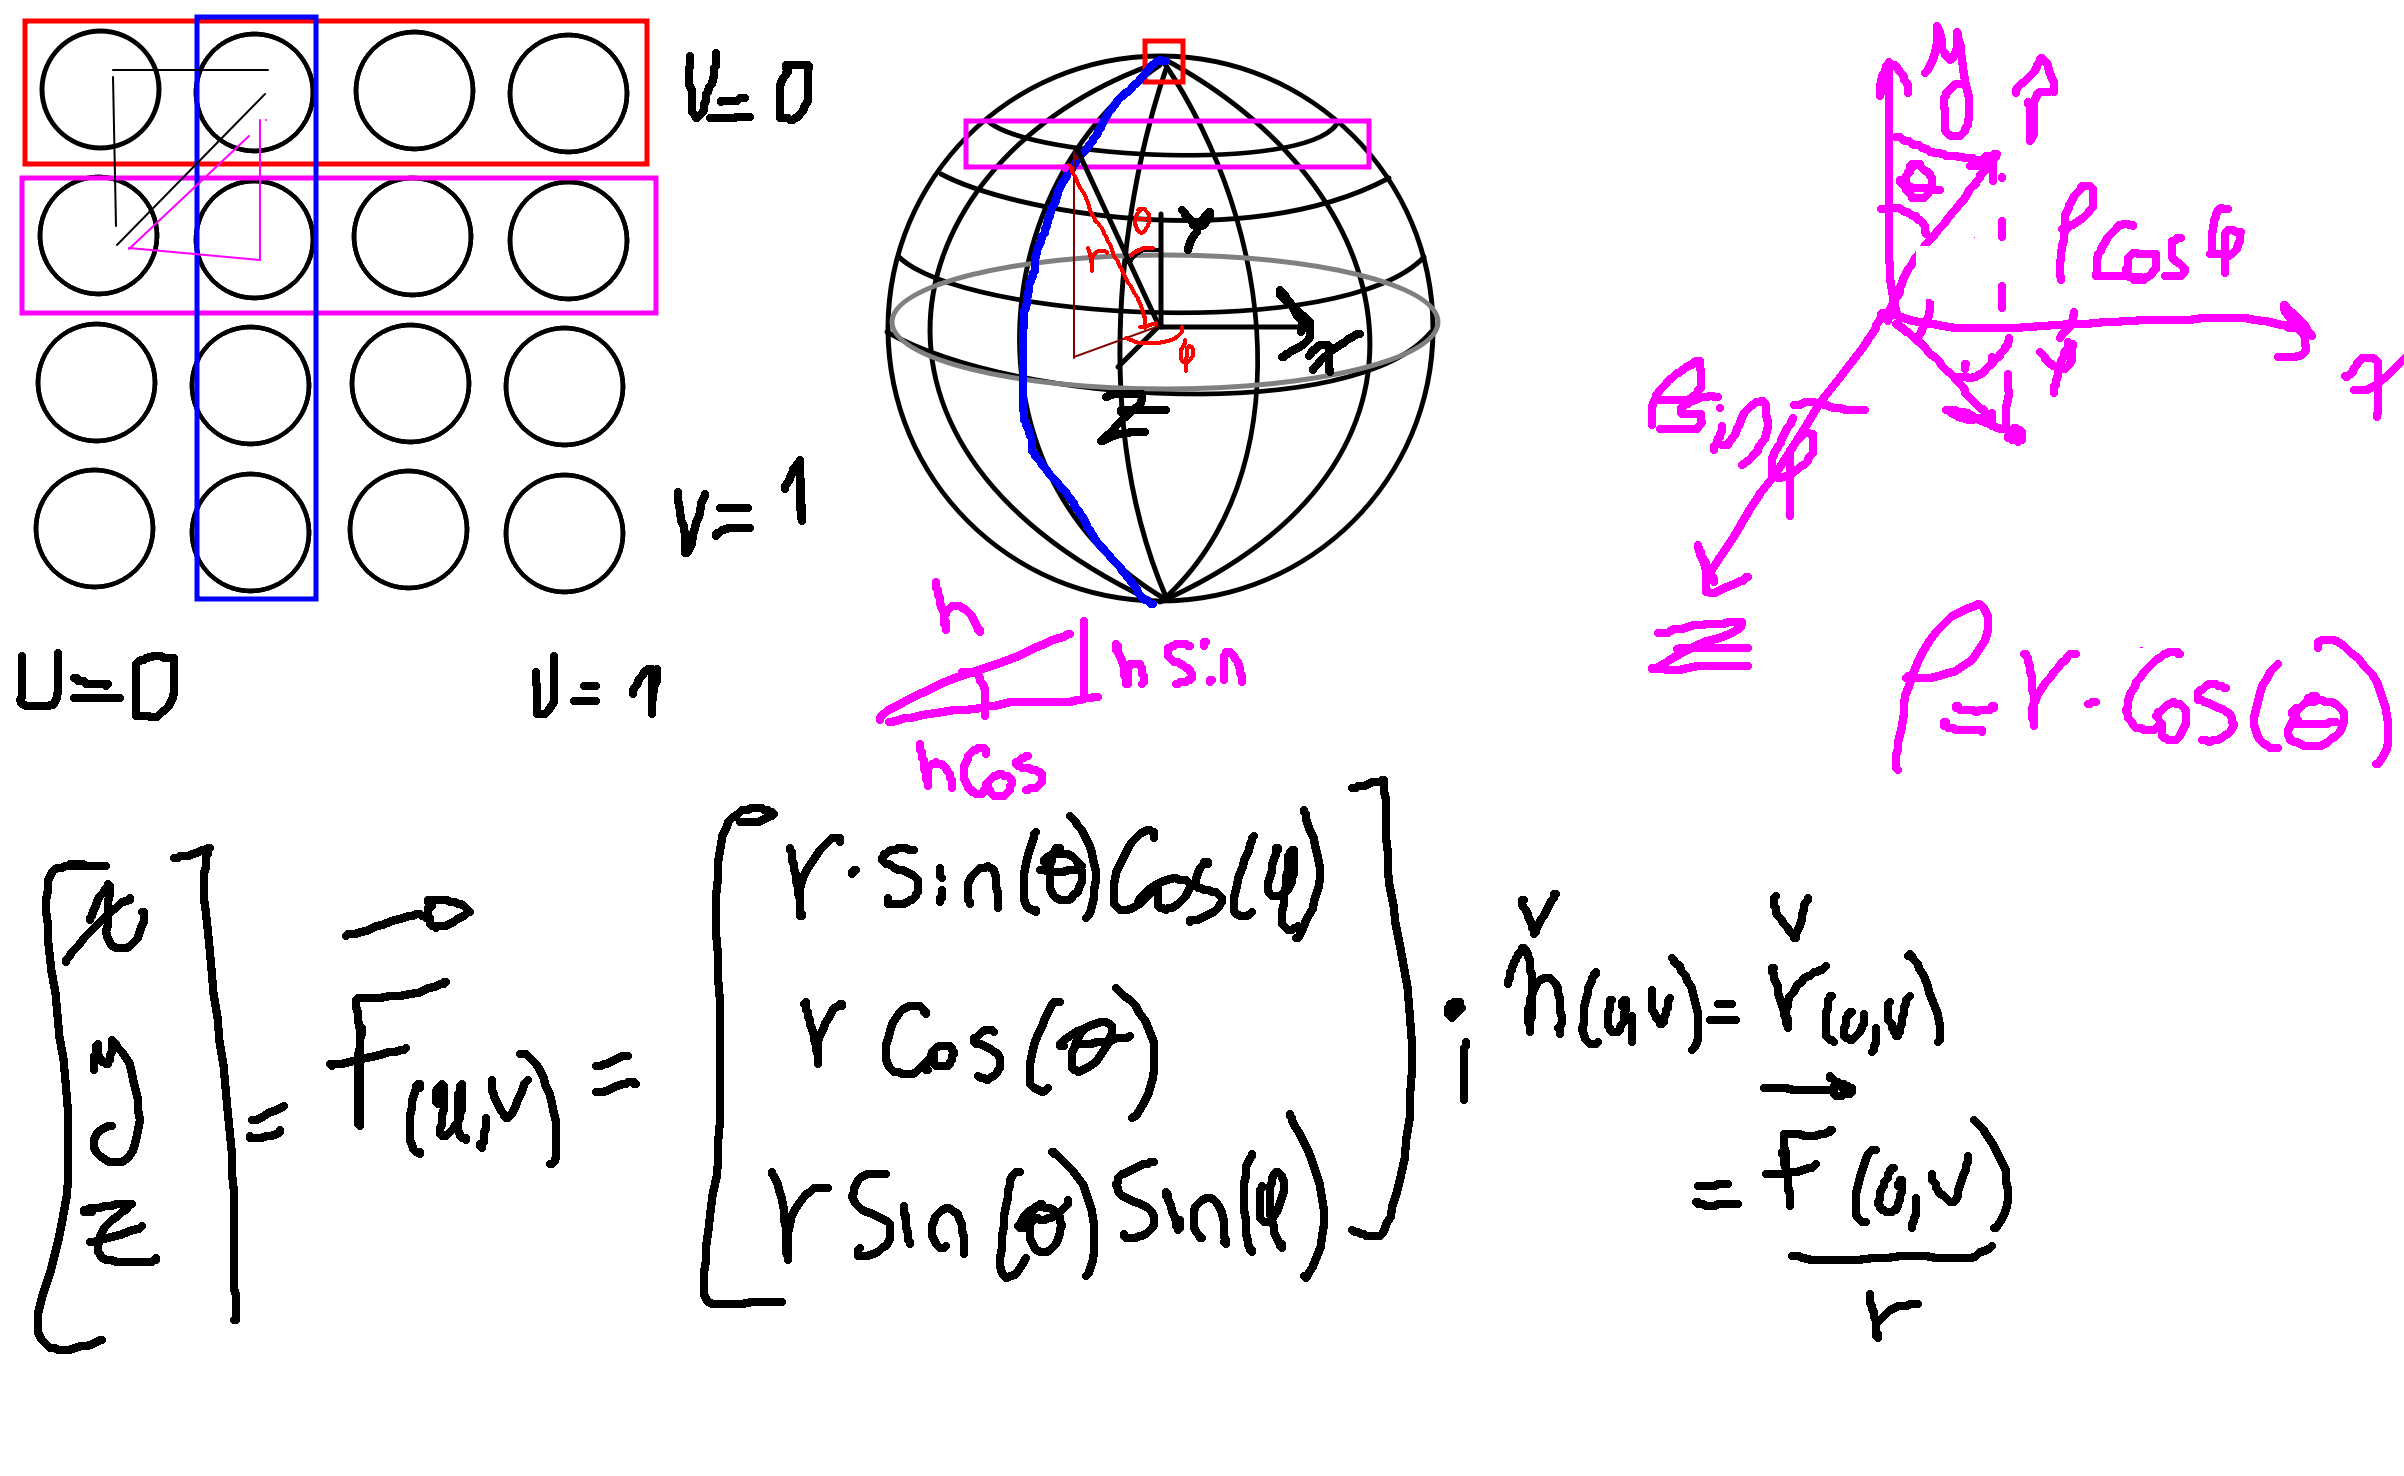 V=0
V=1
U=0
U=1
θ
r
φ
Y
X
Z
h
h sin
h cos
y
r
θ
ρ cos φ
φ
x
z
ρ = r · cos(θ)
[x y z] = F(u,v) = [r · sin(θ) cos(φ)
r cos(θ)
r sin(θ) sin(φ)] ; n(u,v) = r(u,v)
= F(u,v)
r